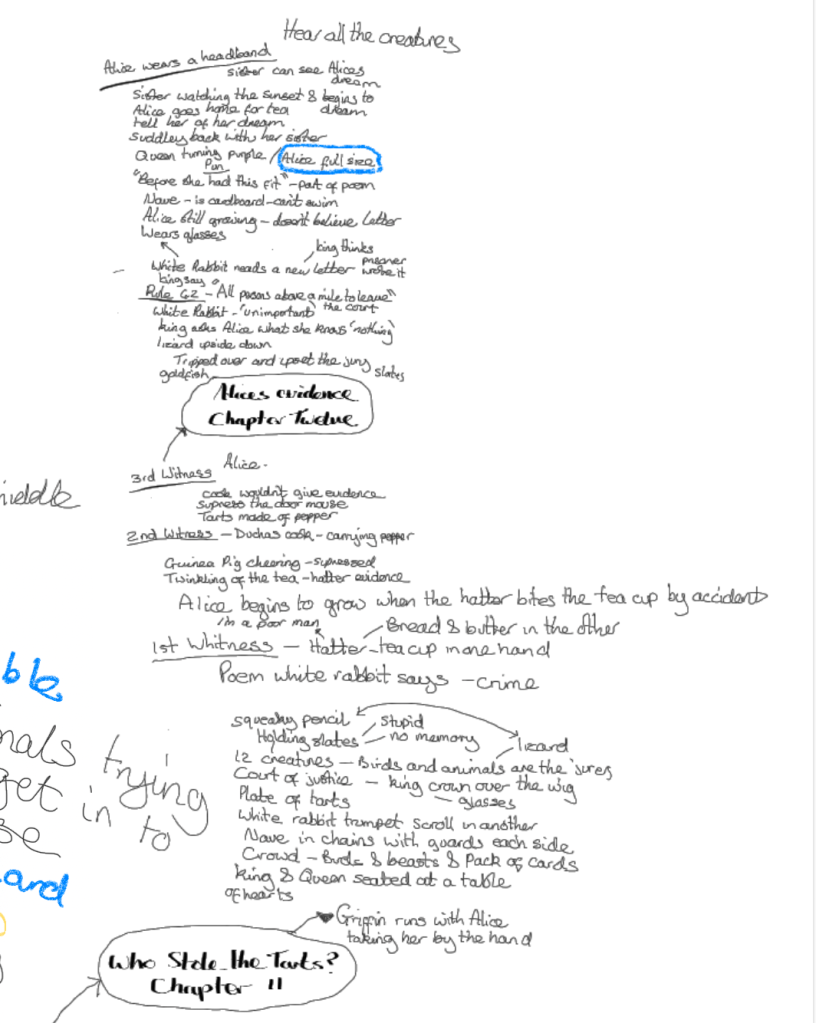 Hear all the creatures
Alice wears a headband
sister can see Alices
dream
Sister watching the sunset & begins to
Alice goes home for tea dream
tell her of her dream
Suddley back with her sister
Queen turning purple / Alice full size
Pun
"Before she had this fit" - part of poem
Nave - is cardboard - can't swim
Alice still growing - doesn't believe letter
Wears glasses
king thinks
White Rabbit reads a new letter prisoner
wrote it
king say
Rule 42 - "All persons above a mile to leave"
White Rabbit - "unimportant" the court
king asks Alice what she knows 'nothing'
lizard upside down
Tripped over and upset the jury
goldfish slates
Alices evidence
Chapter Twelve
3rd Witness Alice.
cook wouldn't give evidence
supress the door mouse
Tarts made of pepper
2nd Witness - Duchas cook - carrying pepper
Guinea Pig cheering - supressed
Twinkling of the tea - hatter evidence
Alice begins to grow when the hatter bites the tea cup by accident
I'm a poor man
Bread & butter in the other
1st Whitness - Hatter - tea cup in one hand
Poem white rabbit says - crime
squeaky pencil stupid
Holding slates - no memory
lizard
12 creatures - Birds and animals are the jurers
Court of justice - king crown over the wig
Plate of tarts - glasses
White rabbit trumpet scroll in another
Nave in chains with guards each side
Crowd - Birds & beasts & Pack of cards
King & Queen seated at a table
of hearts
Griffin runs with Alice
taking her by the hand
Who Stole the Tarts?
Chapter 11
trying
get in to